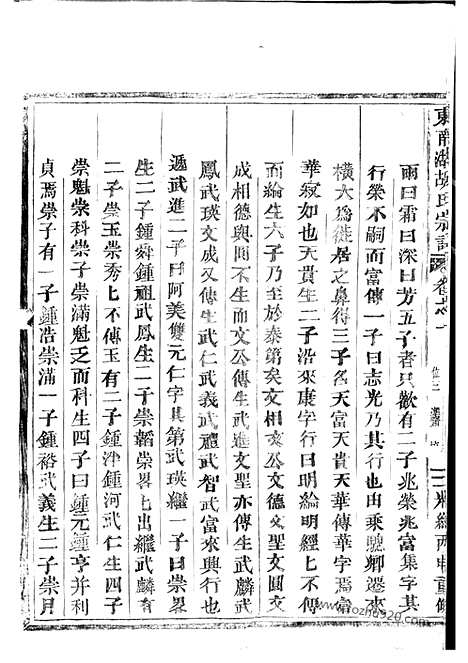 東南湖胡氏宗譜 卷之一
雨曰霜曰深曰芳五子者只歡有二子兆榮兆富集字其
行榮不嗣而富傳一子曰志光乃其行也由乘驄鄉遷來
橫大為徙居之鼻得三子名天富天貴天華傳華字焉富
華寂如也天貴生二子沿來庚字行曰明綸明經上不傳
而綸生六子乃至於泰第矣文相文公文德文聖文圓文
成相德與圓不生而文公傳生武進文聖亦傳生武麟武
鳳武瑛文成又傳生武仁武義武禮武智武富來興行也
遞武進二子曰阿美雙元仁字其第武瑛繼一子曰崇畧
生二子鍾舜鍾祖武鳳生二子崇韜崇畧上出繼武麟育
二子崇玉崇秀上不傳玉有二子鍾泮鍾河武仁生四子
崇魁崇科崇子崇滿魁乏而科生四子曰鍾元鍾亨并利
貞焉崇子有一子鍾浩崇滿一子鍾裕武義生二子崇月
光緒丙申重修